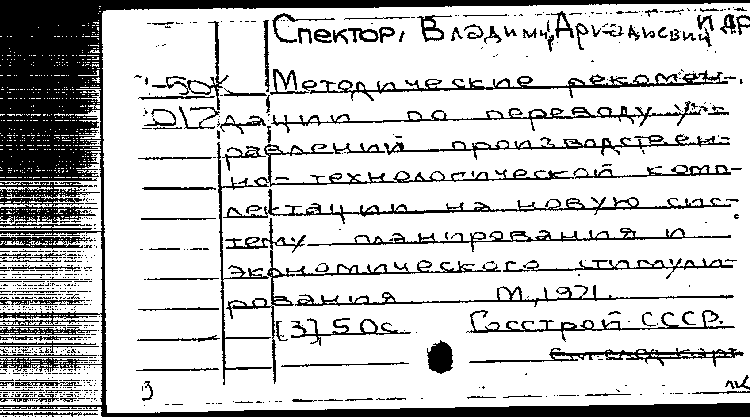 Спектор, Владимир Аркадьевич и др
-50К Методические рекомен-
012 дации по переводу уп-
равлений производствен-
но-технологической комп-
лектации на новую сис-
тему планирования и
экономического стимули-
рования М., 1971.
[3] 50с Госстрой СССР.
См. след. карт